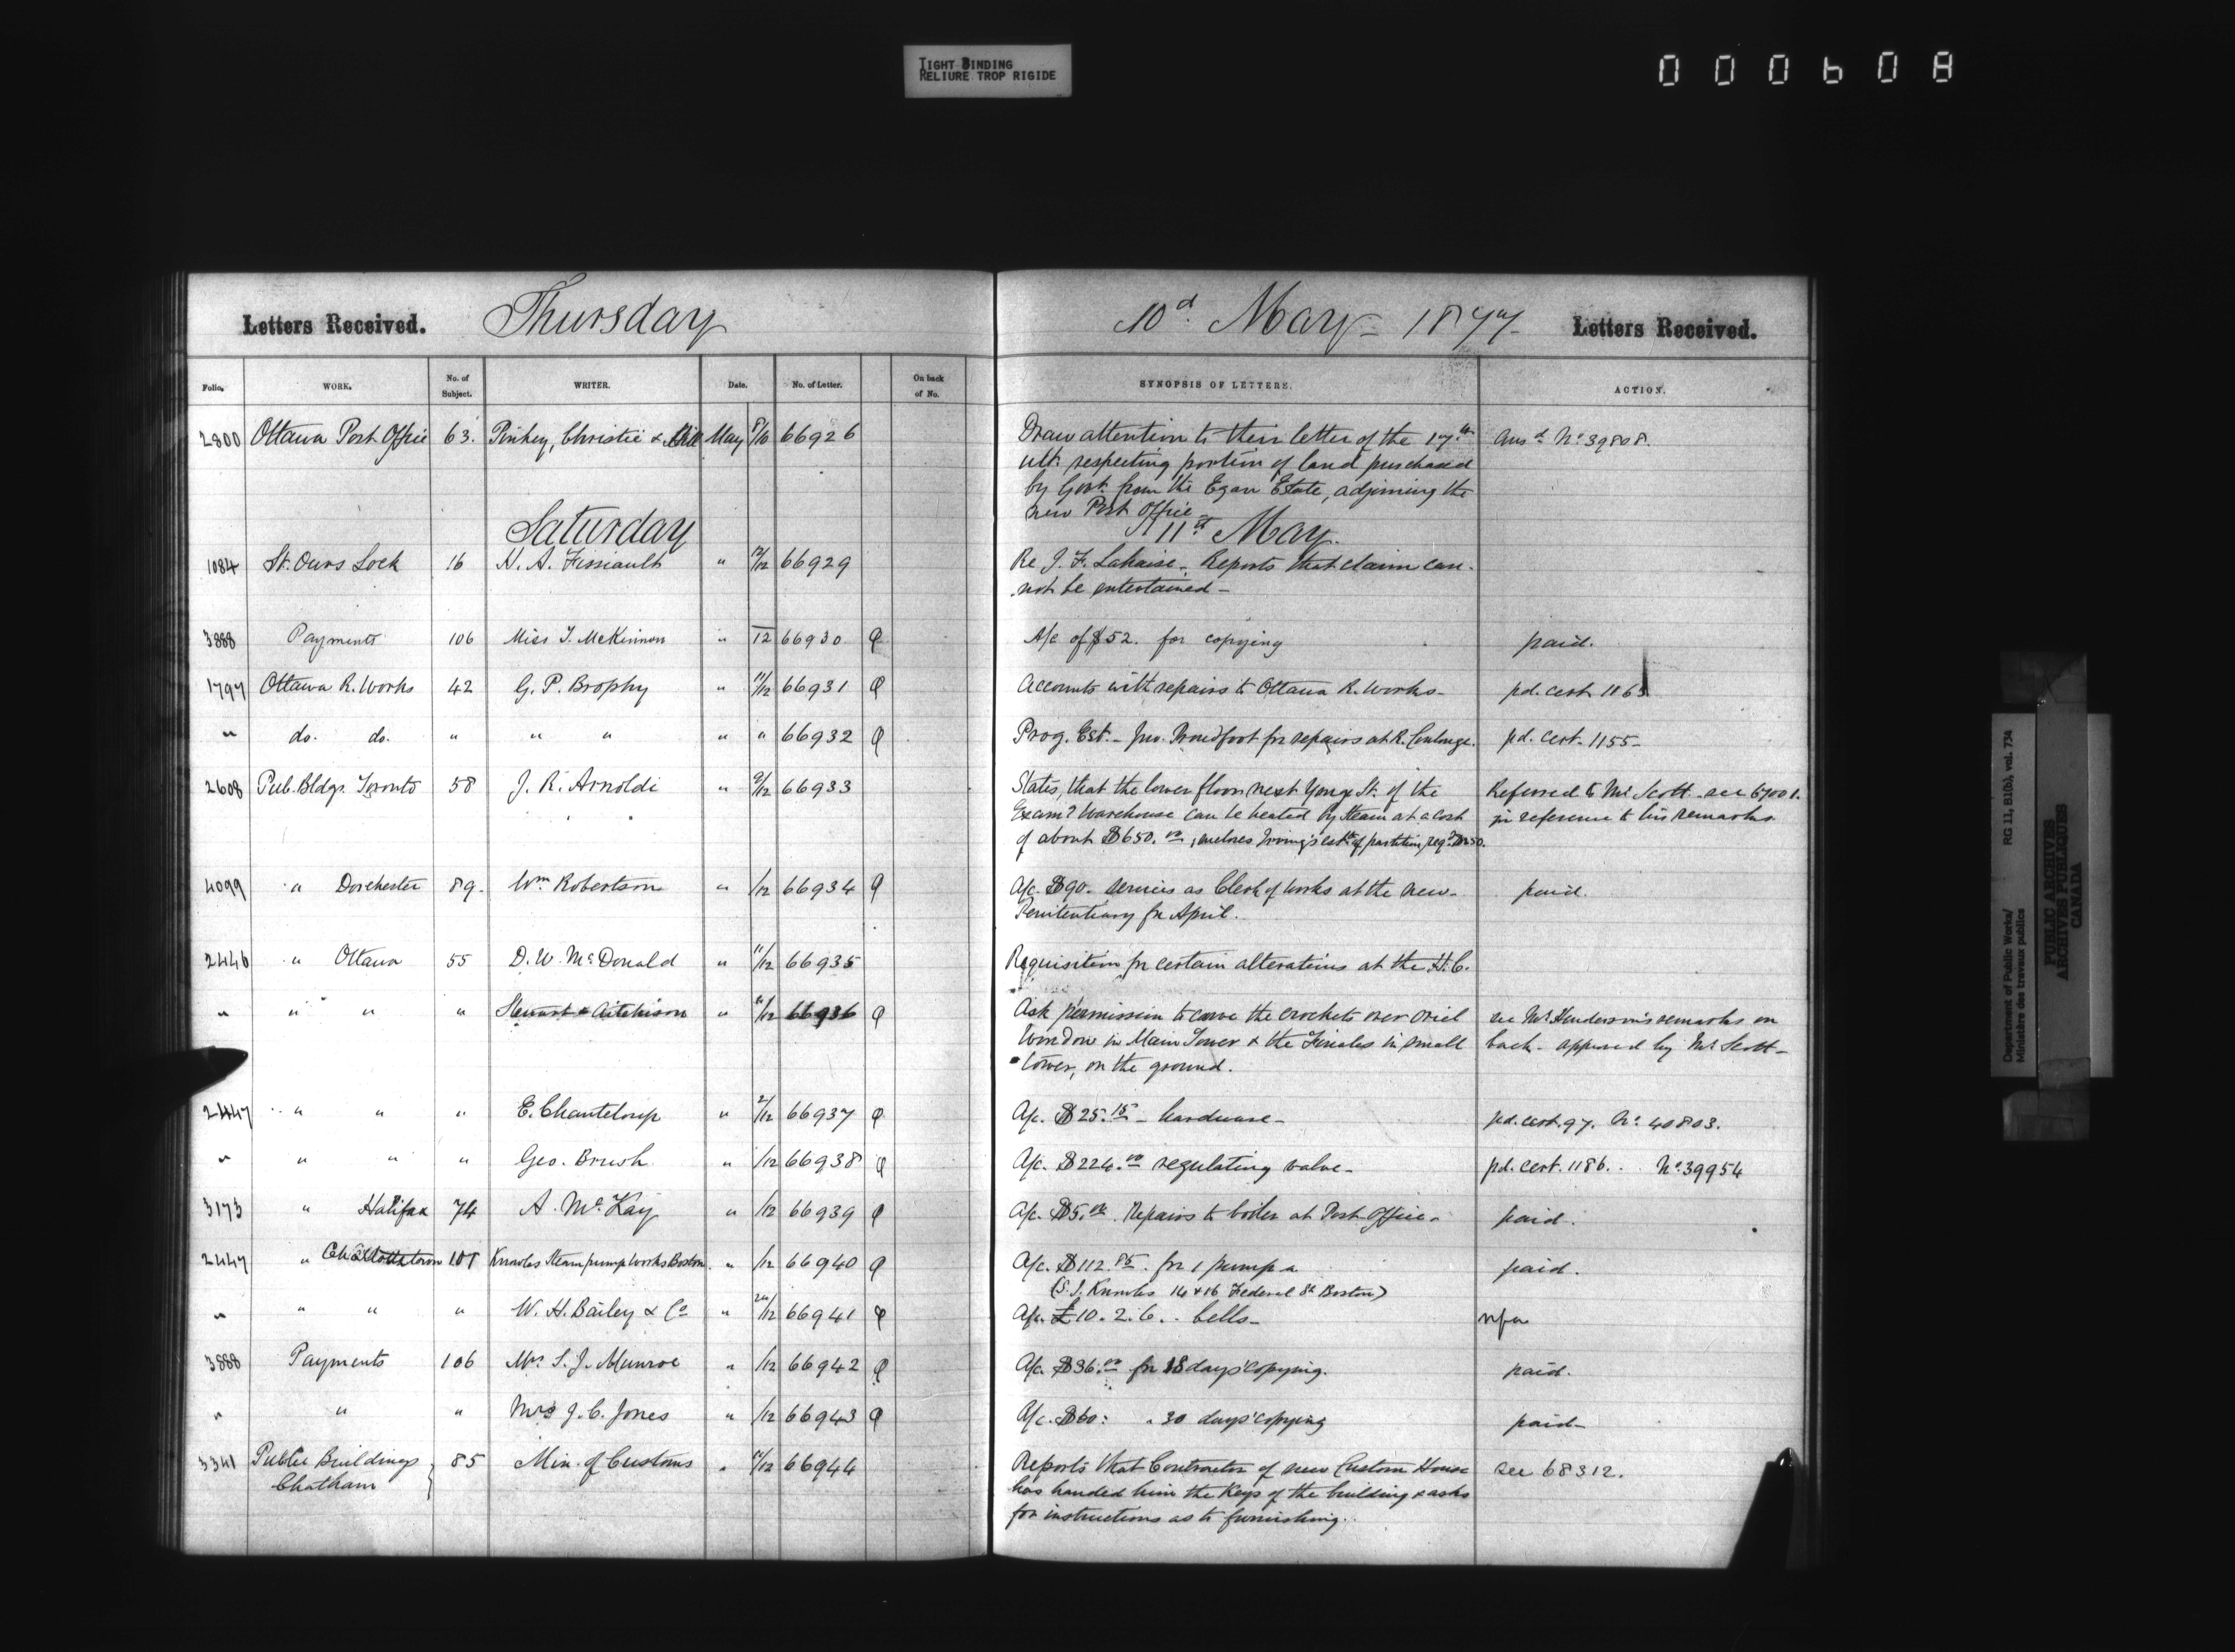 TIGHT BINDING
RELIURE TROP RIGIDE
000608
Letters Received. Thursday 10d. May 1877 Letters Received.
Folio. WORK. No. of Subject. WRITER. Date. No. of Letter. On back of No. SYNOPSIS OF LETTERS. ACTION.
2800 Ottawa Post Office 63. Pinhey, Christie & Hill May 8/10 66926 Draw attention to their letter of the 17th Ansd. No. 39808.
ult. respecting portion of land purchased
by Govt. from the Egan Estate, adjoining the
new Post Office
Saturday 11th May.
1084 St. Ours Lock 16 H. A. Fissiault " 12/12 66929 Re J. F. Lahaise. Reports that claim can-
not be entertained -
3888 Payments 106 Miss T. McKinnon " 12 66930 A/c of $52. for copying paid.
1797 Ottawa R. Works 42 G. P. Brophy " 11/12 66931 Accounts with repairs to Ottawa R. Works- pd. cert. 1165
" do. do. " " " " " 66932 Prog. Est. - Jno. Proudfoot for repairs at R. Coulonge. pd. cert. 1155-
2608 Pub. Bldgs. Toronto 58 J. R. Arnoldi " 9/12 66933 States, that the lower floor next Yonge St. of the Referred to Mr Scott - see 67001.
Exam? Warehouse can be heated by steam at a cost in reference to his remarks
of about $650.00, encloses Irving's est. of partition, reqd.
4099 " Dorchester 89. Wm Robertson " /12 66934 A/c. $90. services as Clerk of Works at the new- paid.
Penitentiary for April.
2446 " Ottawa 55 D. W. McDonald " 11/12 66935 Requisition for certain alterations at the H.C.
" " " " Stewart & Aitchison " 11/12 66936 Ask permission to carve the crockets over oriel see Mr. Henderson's remarks on
Window in Main Tower & the Finials in small back - approved by Mr. Scott -
tower, on the ground.
2447 " " " E. Chanteloup " 2/12 66937 A/c. $25.15 - hardware - pd. cert. 97. No. 40803.
" " " " Geo. Brush. " /12 66938 A/c. $224.00 regulating valve- pd. cert. 1186. No. 39954
3173 " Halifax 74 A. McKay " /12 66939 A/c. $5.00. Repairs to boiler at Post Office. paid.
2447 " Charlottetown 101 Knowles Steam pump Works Boston. " /12 66940 A/c. $112.85. for 1 pump paid.
(S. J. Knowles 14 & 16 Federal St Boston)
" " " " W. H. Bailey & Co " 24/12 66941 A/c. £10. 2. 6. . bells-
3888 Payments 106 Mrs S. J. Munroe " /12 66942 A/c. $36.00 for 18 days' copying. paid.
" " " Mrs J. C. Jones " /12 66943 A/c. $60: " 30 days' copying paid-
3341 Public Buildings 85 Min. of Customs " 11/12 66944 Reports that Contractor of new Custom House see 68312.
Chatham has handed him the Keys of the building & asks
for instructions as to furnishing.
Department of Public Works/
Ministère des travaux publics
RG 11, B1(b), vol. 734
PUBLIC ARCHIVES
ARCHIVES PUBLIQUES
CANADA